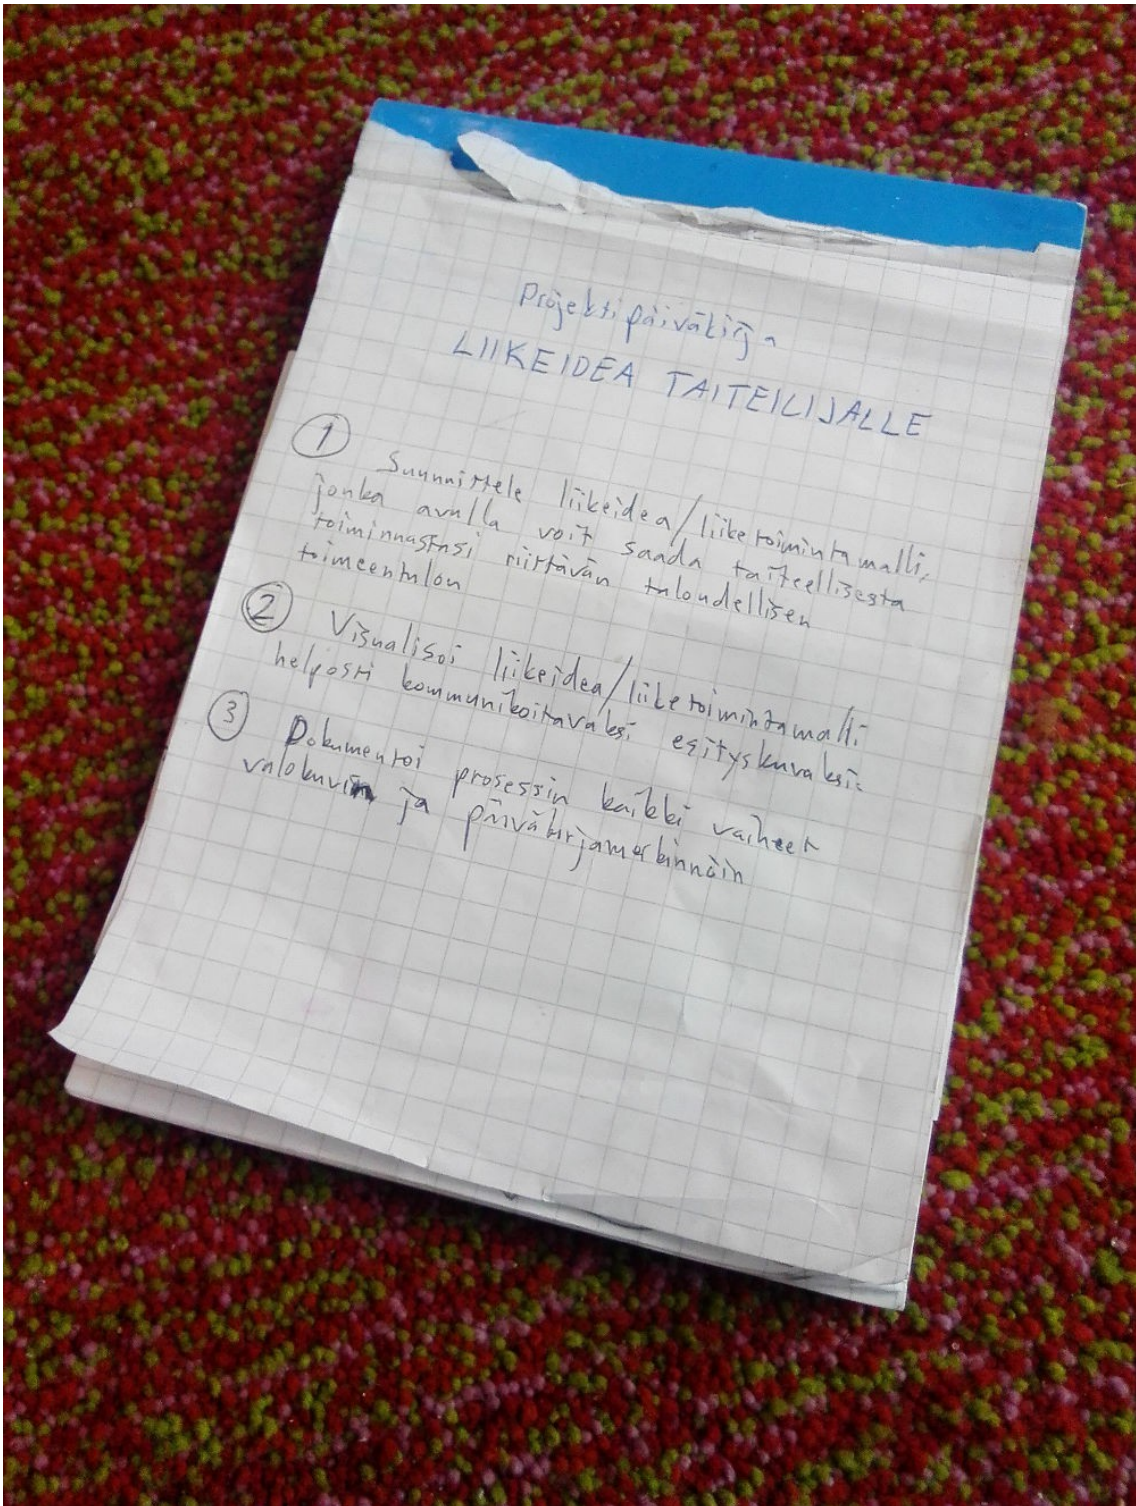 Projektipäiväkirja
LIIKEIDEA TAITEILIJALLE
1 Suunnittele liikeidea/liiketoimintamalli,
jonka avulla voit saada taiteellisesta
toiminnastasi riittävän taloudellisen
toimeentulon
2 Visualisoi liikeidea/liiketoimintamalli
helposti kommunikoitavaksi esityskuvaksi.
3 Dokumentoi prosessin kaikki vaiheet
valokuvin ja päiväkirjamerkinnöin